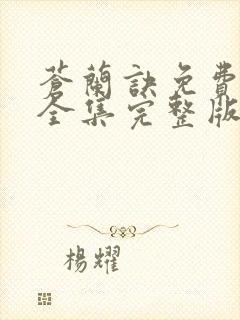 蒼蘭訣免費
全集完整版
楊耀